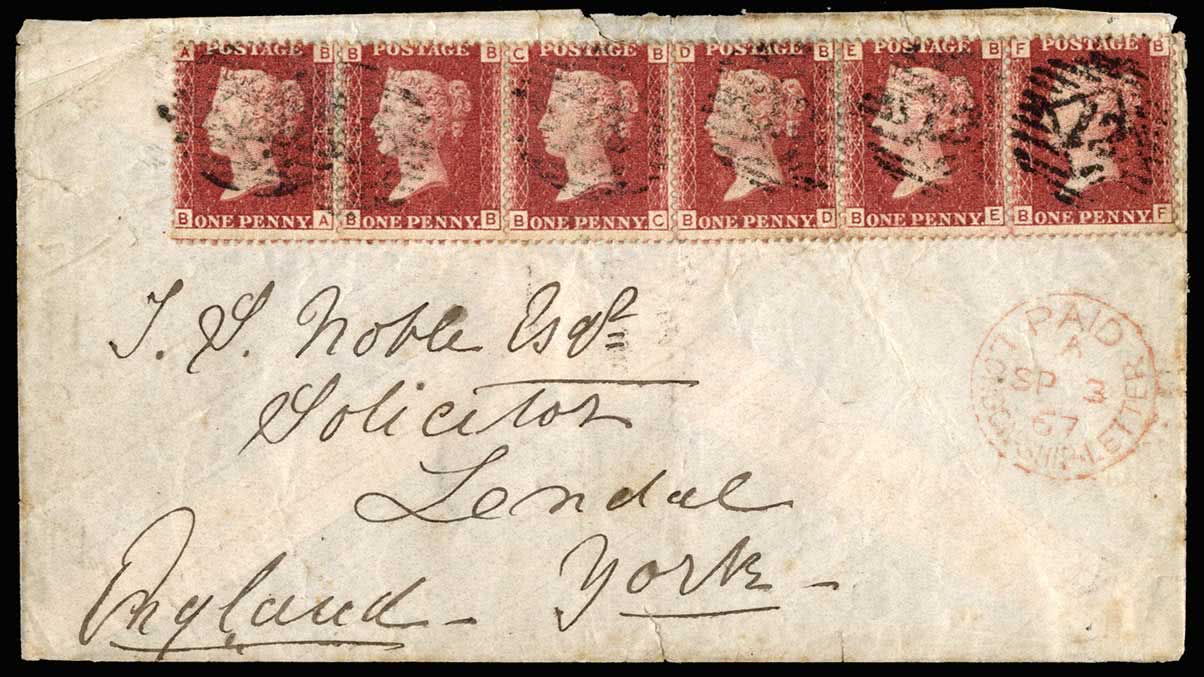 A POSTAGE B B POSTAGE B C POSTAGE B D POSTAGE B E POSTAGE B F POSTAGE B
B ONE PENNY. A B ONE PENNY. B B ONE PENNY. C B ONE PENNY. D B ONE PENNY. E B ONE PENNY. F
T. S. Noble Esqr
Solicitor
Lendal
York
England
PAID
A
SP 3
67
LONDON SHIP-LETTER